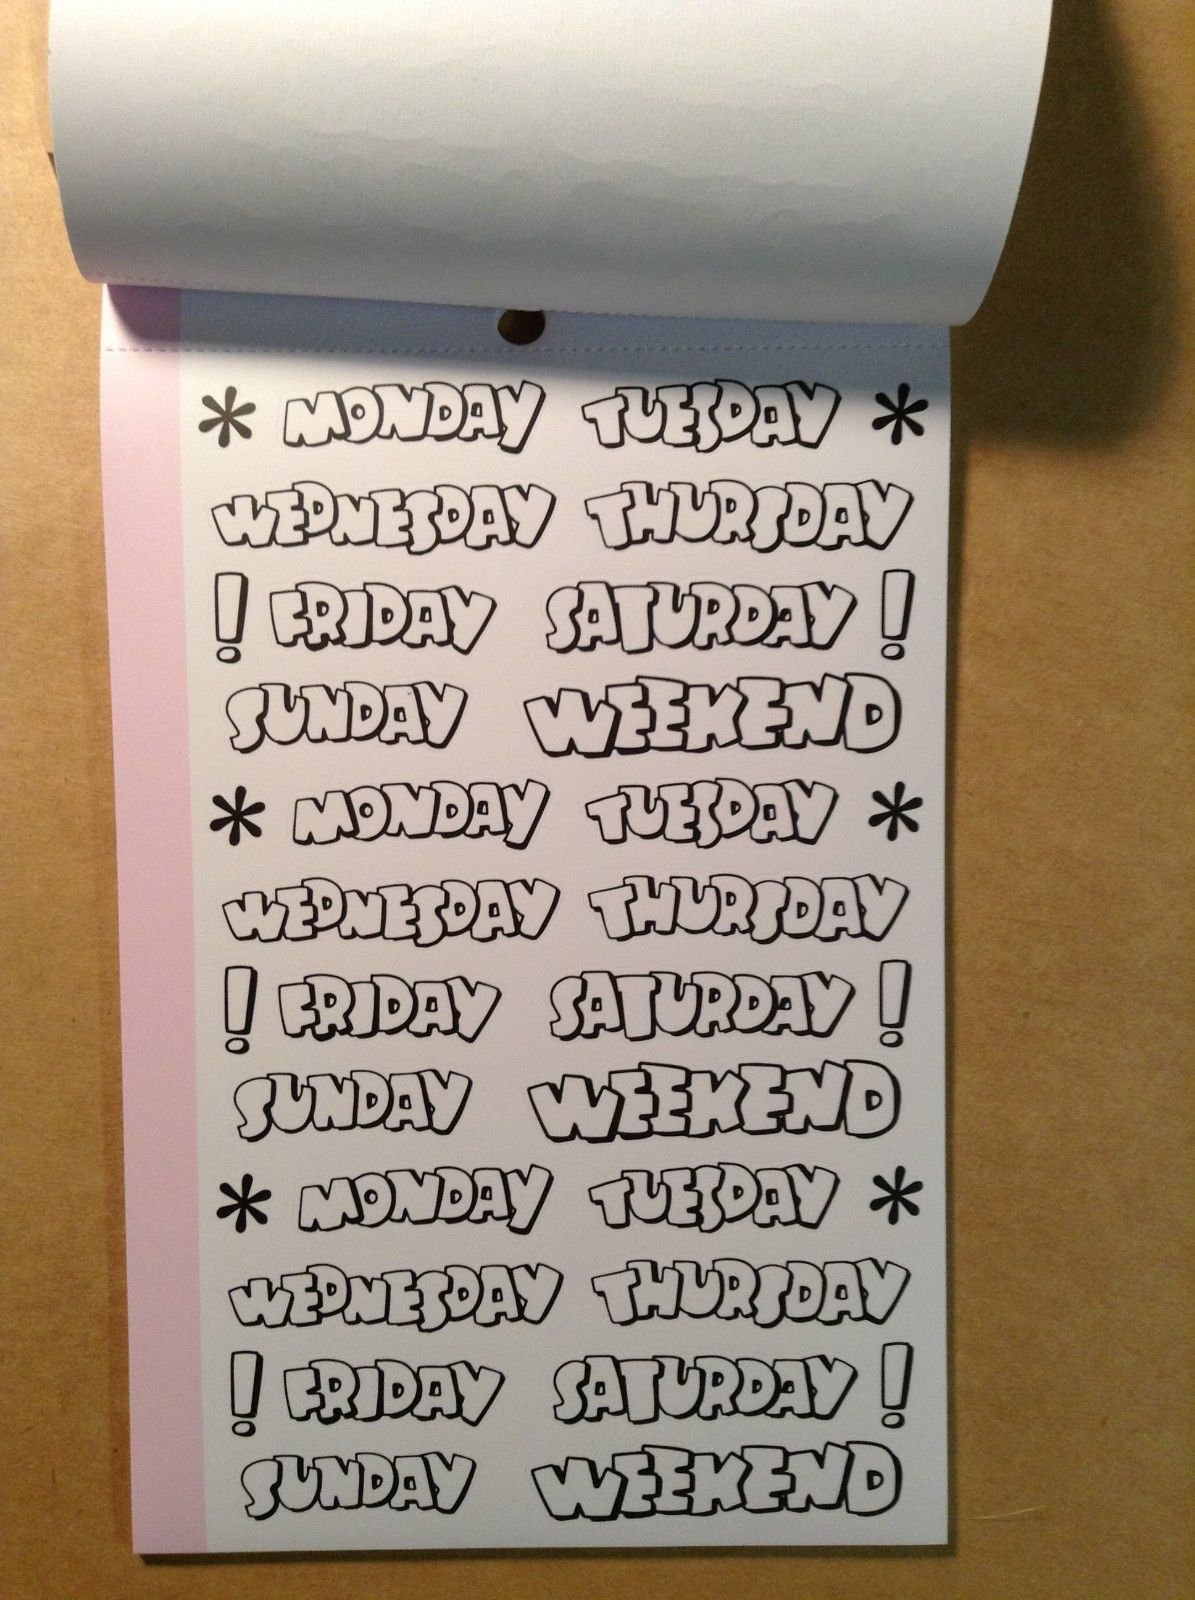 * MONDAY TUESDAY *
WEDNESDAY THURSDAY
! FRIDAY SATURDAY !
SUNDAY WEEKEND
* MONDAY TUESDAY *
WEDNESDAY THURSDAY
! FRIDAY SATURDAY !
SUNDAY WEEKEND
* MONDAY TUESDAY *
WEDNESDAY THURSDAY
! FRIDAY SATURDAY !
SUNDAY WEEKEND